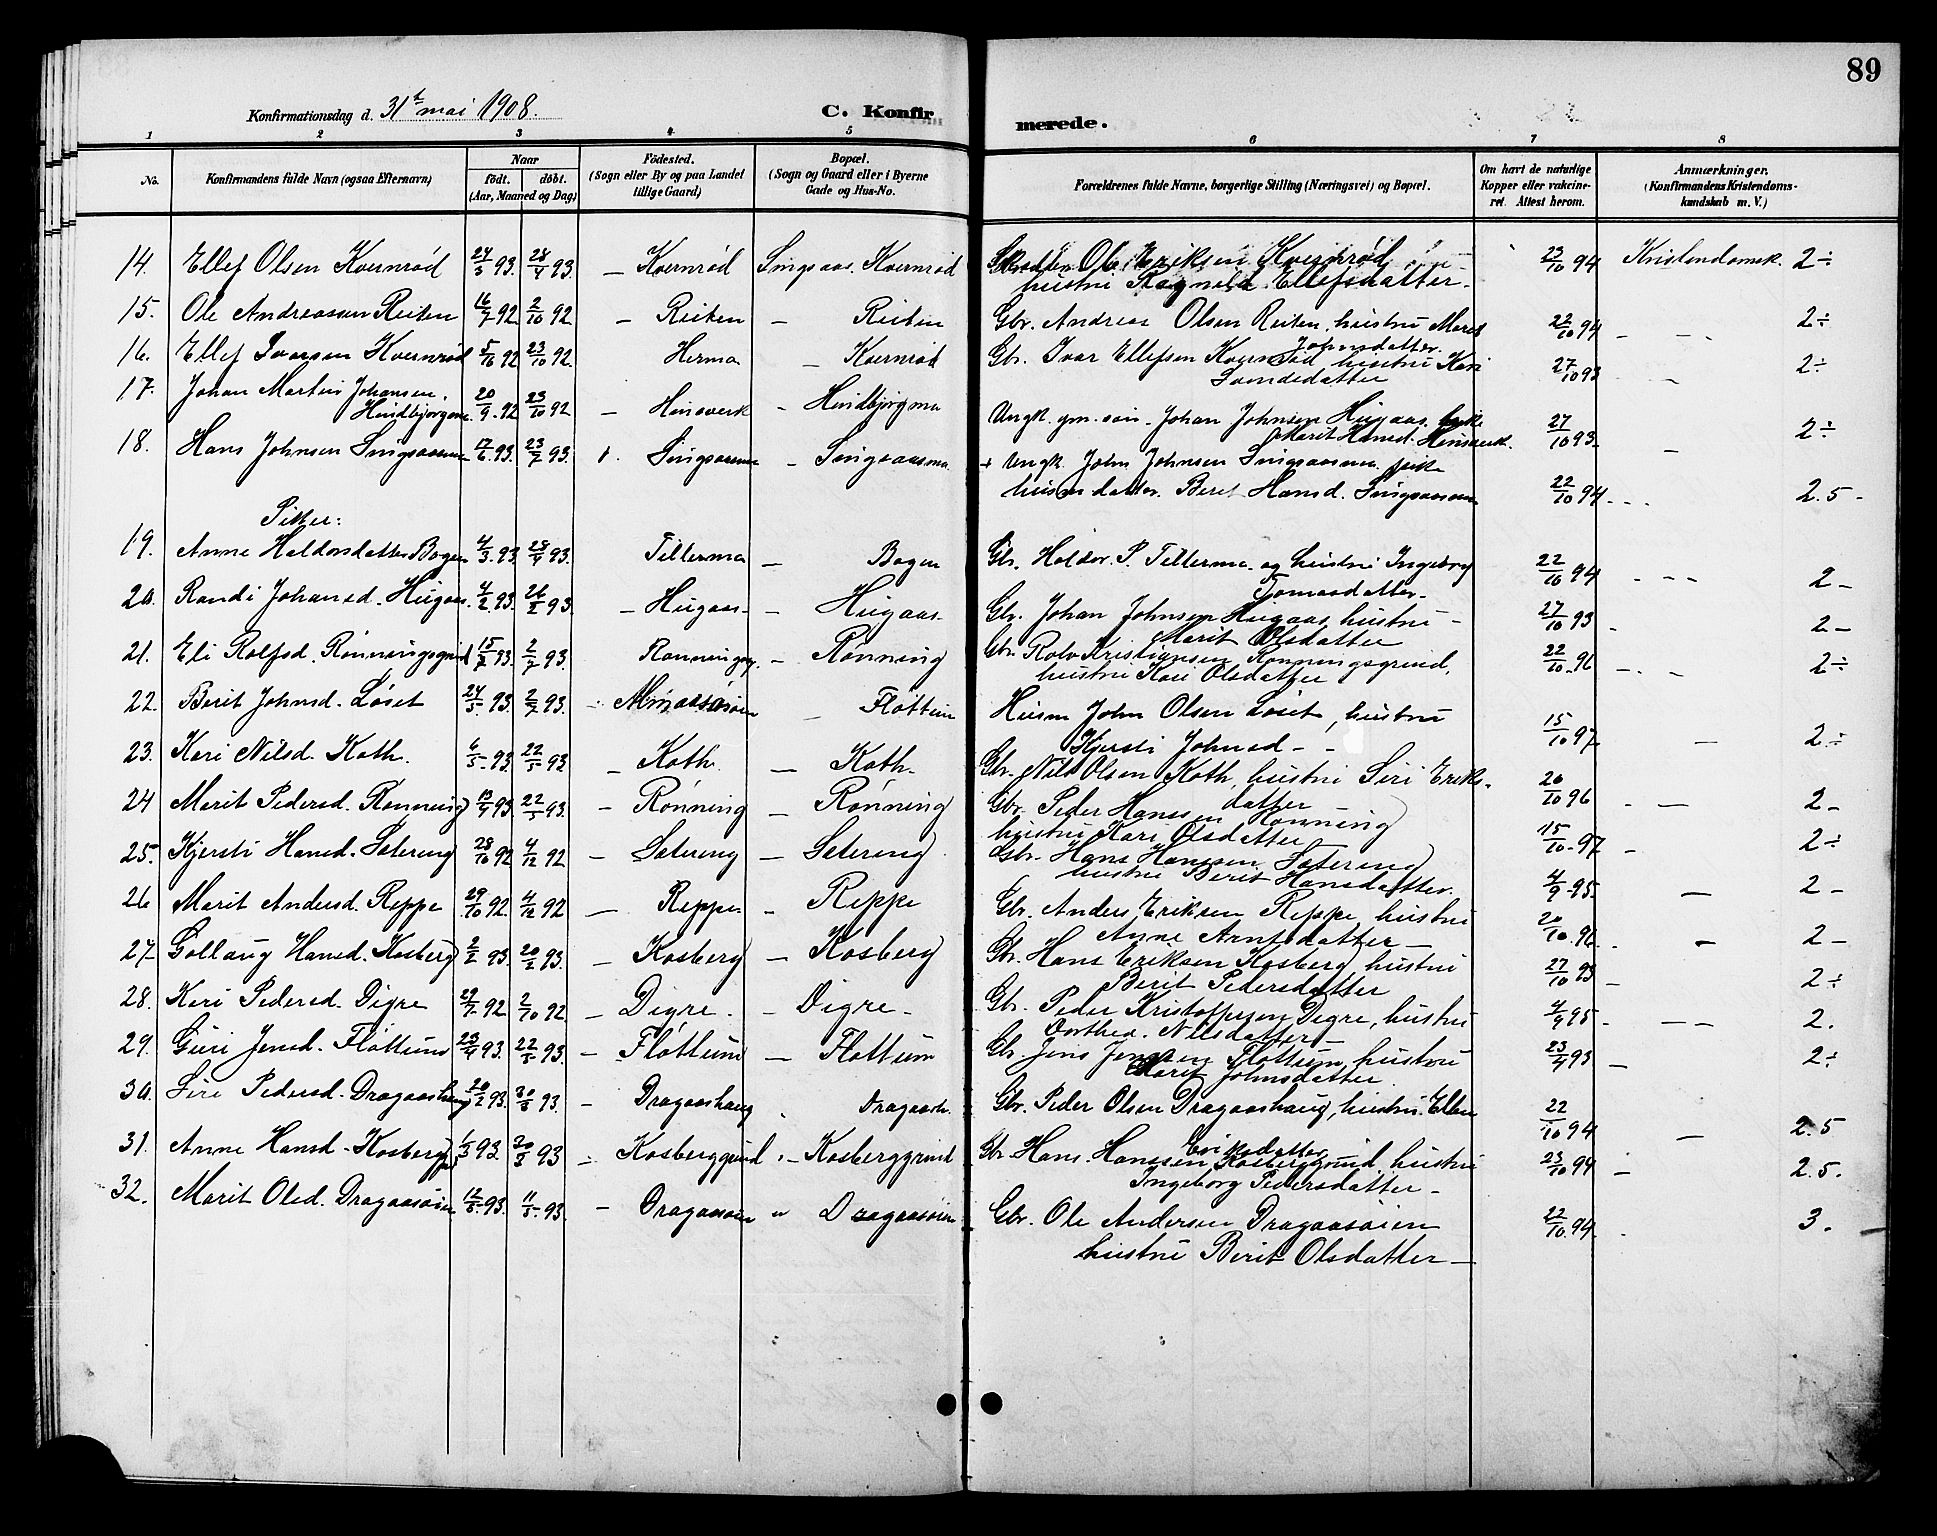 89
Konfirmationsdag d. 31te mai 1908. C. Konfirmerede.
1 2 3 4 5 6 7 8
No. Konfirmandens fulde Navn (ogsaa Efternavn) Naar födt. döbt. (Aar, Maaned og Dag) Födested. (Sogn eller By og paa Landet tillige Gaard) Bopæl. (Sogn og Gaard eller i Byerne Gade og Hus-No. Forældrenes fulde Navne, borgerlige Stilling (Næringsvei) og Bopæl. Om havt de naturlige Kopper eller vakcineret. Attest herom. Anmærkninger. (Konfirmandens Kristendomskundskab m. V.)
14. Ellef Olsen Kvernrød 24/3 93. 28/4 93. — Kvernrød Singsaas. Kvernrød Ole Eriksen Kvernrød 23/10 94 Kristendomsk. 2 ÷
hustru Ragnhild Ellefsdatter.
15. Ole Andreassen Reiten 16/7 92 2/10 92 — Reiten — Reiten Gbr. Andreas Olsen Reiten, hustru Maret 22/10 94 — — 2 ÷
Johnsdatter.
16. Ellef Ivarsen Kvernrød 5/10 92 23/10 92. Herma — Kvernrød Gbr. Ivar Ellefsen Kvernrød hustru Kari 27/10 93 — 2 ÷
17. Johan Martin Johansen.
Hindbjørgmo 20/9 92 23/10 92 — Hinsverk — Hindbjørgmo Ungk. gm. søn. Johan Johnsen Hugaas, pike 27/10 93. — 2 ÷
Marit Hansd. Hinsverk.
18. Hans Johnsen Singsaasmo 17/6 93. 23/7 93. Singsaasmo — Singsaasmo + Ungk. John Johnsen Singsaasmo. pike
husmdatter. Beret Hansd. Singsaasmo 22/10 94 — 2.5 —
Piker:
19. Anne Haldorsdatter Bogen 4/3 93. 28/4 93. Tillermo — Bogen Gbr. Haldor. P. Tillermo og hustru Ingeborg 22/10 94 — — — 2 —
Tomasdatter.
20. Randi Johansd. Hugaas. 4/2 93. 26/2 93. — Hugaas — Hugaas. Gbr. Johan Johnsen Hugaas, hustru — 27/10 93 — 2 —
Marit Olsdatter
21. Eli Rolfsd. Rønningsgrind 15/7 93. 2/7 93. Rønningsg. — Rønning Gbr. Rolv Kristiansen Rønningsgrind, 22/10 96 — — 2 ÷
hustru Kari Olsdatter
22. Berit Johnsd. Løset 24/5 93. 2/7 93. — Flottum Husm John Olsen Løset, hustru 15/10 97 — 2 ÷
Kjersti Johnsd —
23. Kari Nilsd. Koth. 6/5 93. 22/5 93 — Koth. — Koth. Gbr. Nils Olsen Koth, hustru Siri Eriks- 20/10 96 — 2 —
datter
24 Marit Pedersd. Rønning 13/4 93. 22/5 93. — Rønning Rønning Gbr. Peder Hanssen Rønning
hustru Kari Olsdatter 15/10 97 — 2 ÷
25. Kjersti Hansd. Setereng 28/10 92 4/12 92 — Setereng — Setereng Gbr. Hans Hanssen Setereng
hustru Berit Hansdatter. 4/9 95 — 2 —
26 Marit Andersd. Reppe 29/10 92. 4/12 92 — Reppe — Reppe Gbr. Anders Eriksen Reppe hustru 20/10 96 — 2 —
Anne Arntsdatter —
27 Gollaug Hansd. Kosberg 2/2 93. 20/2 93. — Kosberg — Kosberg Gbr. Hans Eriksen Kosberg, hustru 27/10 93 — 2 ÷
Berit Pedersdatter
28. Kari Pedersd. Digre 29/7 92 2/10 92. — Digre. — Digre — Gbr. Peder Kristoffersen Digre, hustru 4/9 95 — — 2.
Dorthea. Nilsdatter —
29. Guri Jensd. Fløttum 23/4 93. 22/5 93. — Fløttum — Flottum Gbr. Jens Jenssen Fløttum hustru 23/9 93 — 2 ÷
Marit Johnsdatter.
30. Siri Pedersd. Dragaashaug 20/2 93. 30/3 93. — Dragaashaug Dragaash. Gbr. Peder Olsen Dragaashaug, hustru Ellen 22/10 94 — 2.5
Eriksdatter
31. Anne Hansd. Kosberg 1/3 93. 30/3 93 — Kosberggrind — Kosberggrind Gbr. Hans. Hanssen Kosberggrind, hustru 23/10 94 — 2.5.
Ingeborg Pedersdatter —
32. Marit Olsd. Dragaasøien 12/3 93. 11/5 93. — Dragaasøien " Dragaasøien Gbr. Ole Andersen Dragaasøien 22/10 94. 3.
hustru Berit Olsdatter —